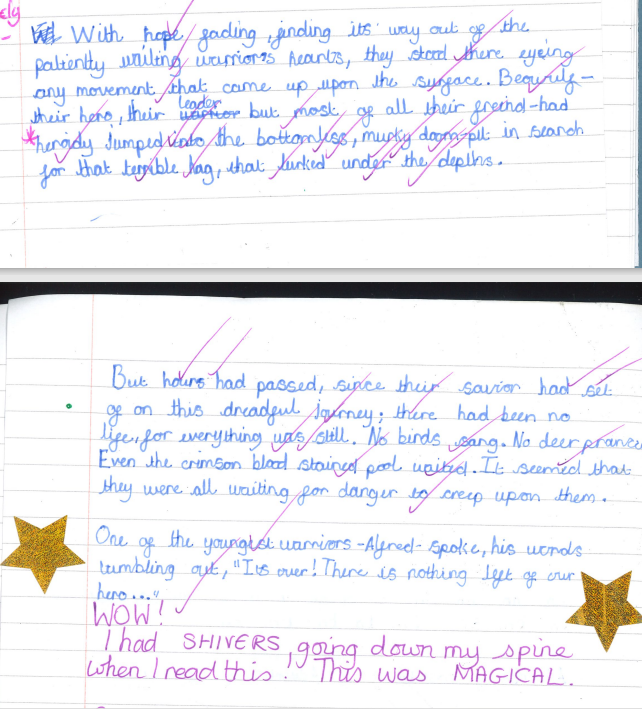 ely
With hope fading, finding its' way out of the
patiently waiting warrior's hearts, they stood there eyeing
any movement that came up upon the surface. Beowulf-
leader
their hero, their warrior but most of all their freind-had
heroicly jumped into the bottomless, murky doom-pit in search
for that terrible hag, that lurked under the depths.
But hours had passed, since their savior had set
of on this dreadful journey; there had been no
life, for everything was still. No birds sang. No deer prance
Even the crimson blood stained pool waited. It seemed that
they were all waiting for danger to creep upon them.
One of the youngest warriors -Alfred- spoke, his words
tumbling out, "Its over! There is nothing left of our
hero..."
WOW!
I had SHIVERS, going down my spine
when I read this! This was MAGICAL.